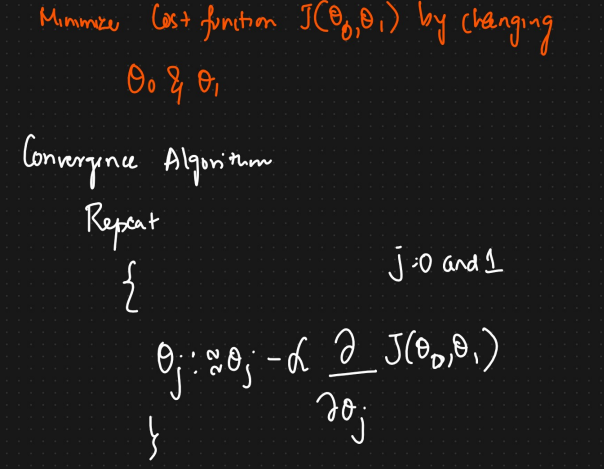 Minimize Cost function J(θ₀,θ₁) by changing
θ₀ & θ₁
Convergence Algorithm
Repeat
j=0 and 1
{
θj :≈ θj - α ∂/∂θj J(θ₀,θ₁)
}